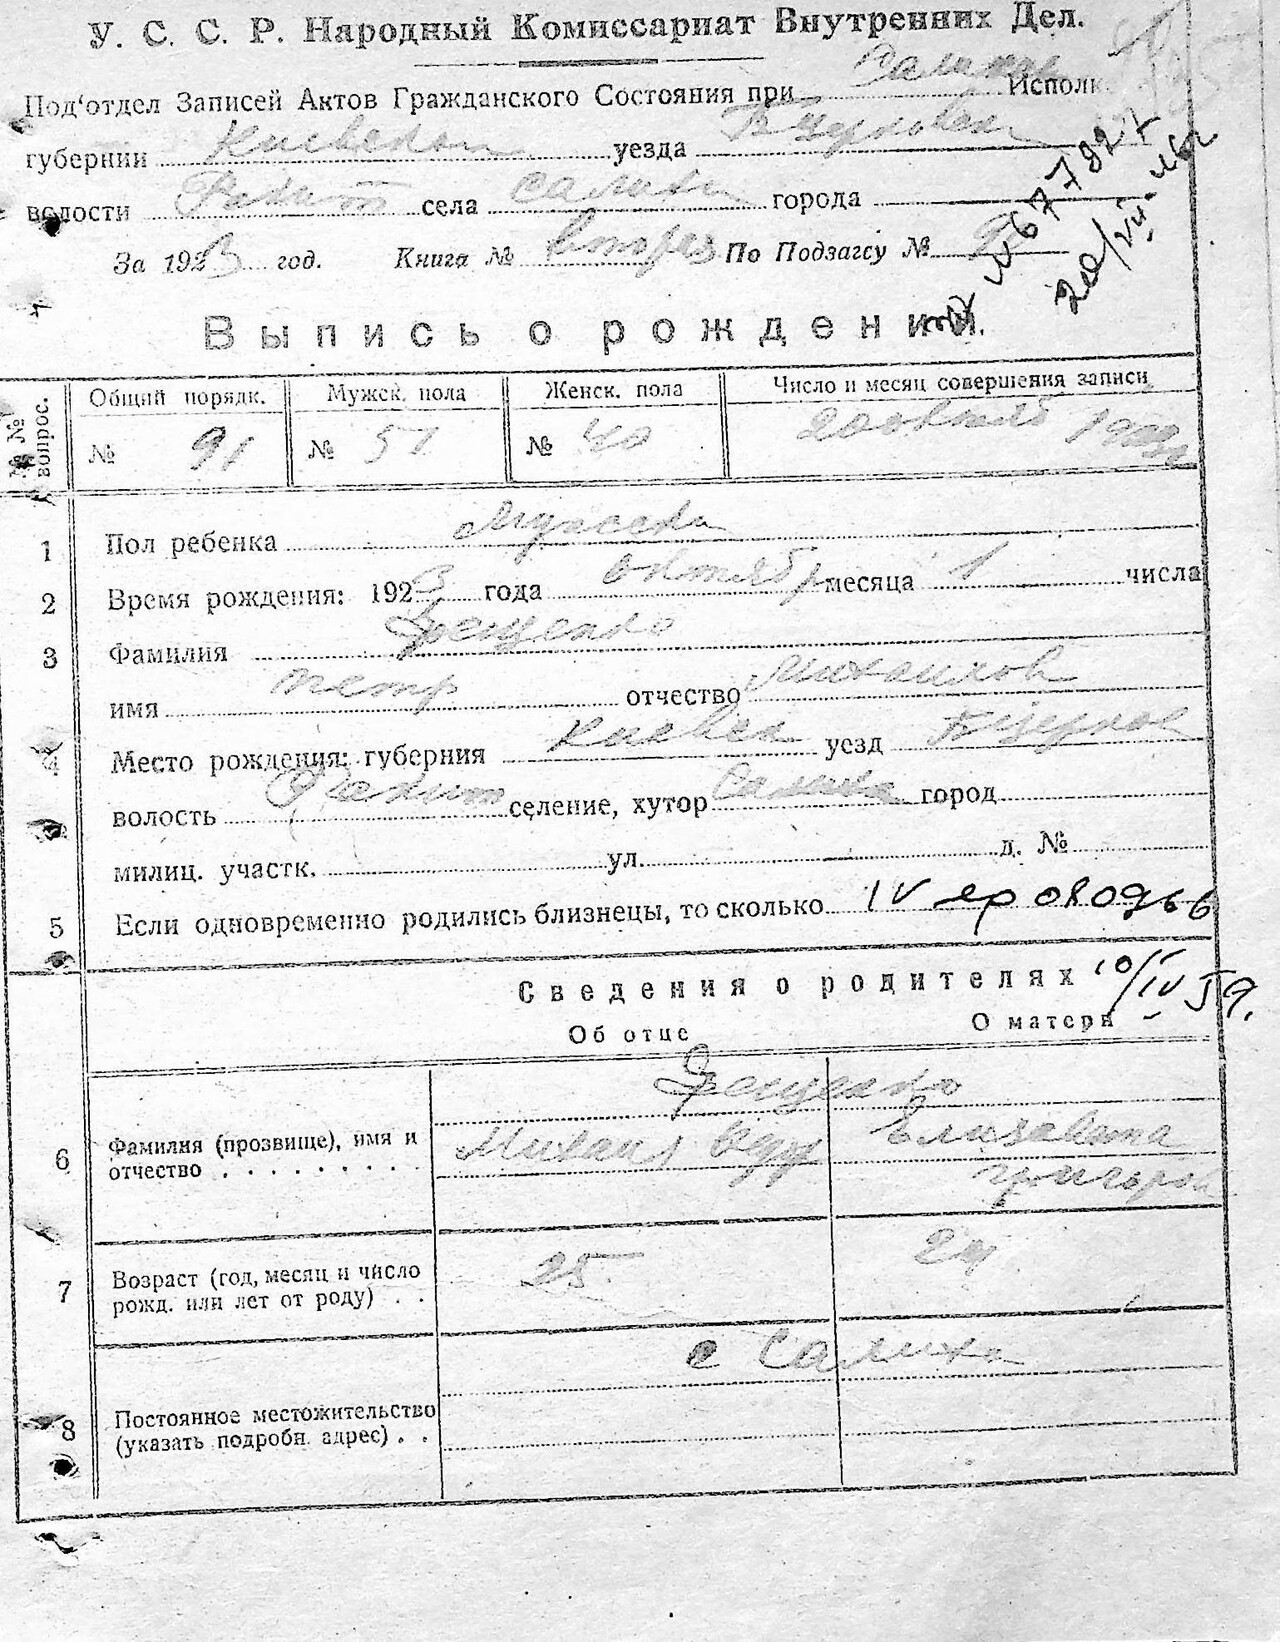 У. С. С. Р. Народный Комиссариат Внутренних Дел.
Под'отдел Записей Актов Гражданского Состояния при Исполк.
губернии Киевской уезда Бцерковск
волости Ракит села Салиха города
За 1923 год. Книга № вторая По Подзагсу №
Выпись о рождении.
№ № вопрос. Общий порядк. Мужск. пола Женск. пола Число и месяц совершения записи
№ 91 № 51 № 40 20 октяб 1923
1 Пол ребенка Мужска
2 Время рождения: 1923 года октябр месяца 1 числа
3 Фамилия
имя Петр отчество Михаилов
4 Место рождения: губерния Киевск уезд Бцерков
волость Ракит селение, хутор Салиха город
милиц. участк. ул. д. №
5 Если одновременно родились близнецы, то сколько
Сведения о родителях
10/IV 59.
Об отце О матери
6 Фамилия (прозвище), имя и отчество Михаил Елизавета
Григоров
7 Возраст (год, месяц и число рожд. или лет от роду) 25 24
8 Постоянное местожительство (указать подробн. адрес) с Салиха